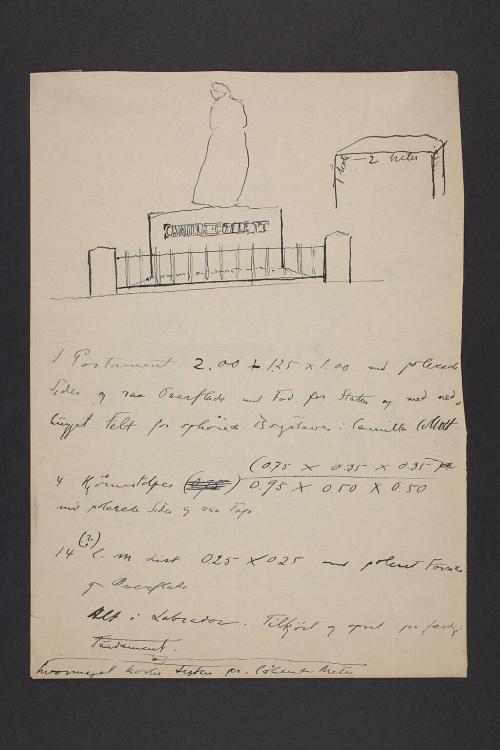 CAMILLA COLLETT
1 Meter — 2 Meter
1 Postament 2.00 + 1.25 x 1.00 med polerede
Sider og raa Overflade med Fod for Statue og med ned-
hugget Felt for ophöiede Bogstaver: Camilla Collett
(0.75 X 0.35 X 0.35
4 Hjörnestolper 0.95 X 0.50 X 0.50
med polerede Sider og raa Top.
(2.)
14 l. m List 0.25 X 0.25 med poleret
og Overflade
Alt i Labrador. Tilkjört og opsat paa færdig
Fundament.
hvormeget koster Listen pr. löbende Meter